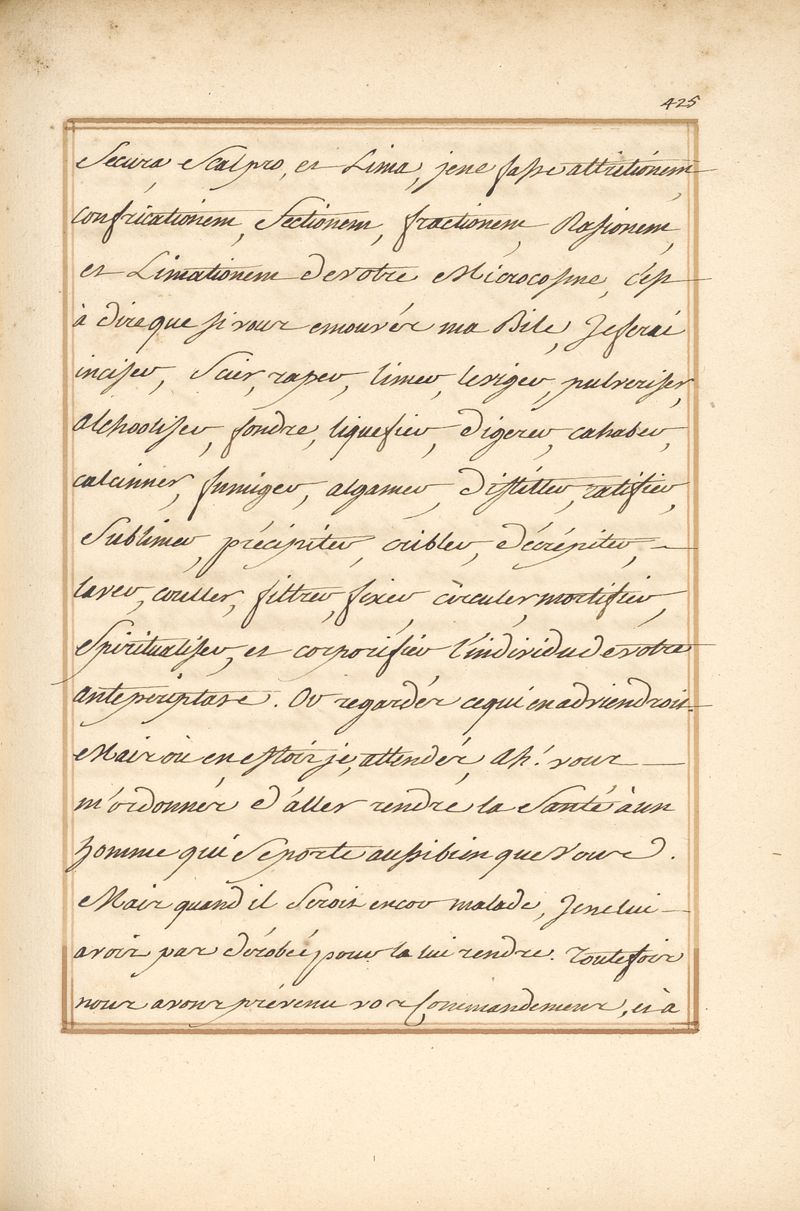 425
Secura Scalpro, et Lima, jene fasse attritionem
confricationem, Sectionem, fractionem Rasionem,
et Limationem de votre Microcosme, c'est
à dire que si vous emouvér ma Bile, Je ferai
inciser, Scier, raper, limer, leviger, pulveriser,
alchooliser, fondre, liquefier, digerer, cahaber,
calcinner, fumiger, algamer, distiller, ratifier,
Sublimer, précipiter, cribler, décrépiter, —
laver, couller, filtrer, fixer, circuler mortifier,
Spiritualiser, et corporifier l'individu de votre
anteperiptase. Ou regardér ce qui en adviendroit.
Mais où en estois je, attendér, Ah! vous —
m'ordonnér d'aller rendre la Santé à un
homme qui Se porte aussi bien que Vous.
Mais quand il Serois encor malade, Je ne lui —
avois pas dérobée pour la lui rendre. Toutefois
nous avons prévenu vos Commandemens, et à